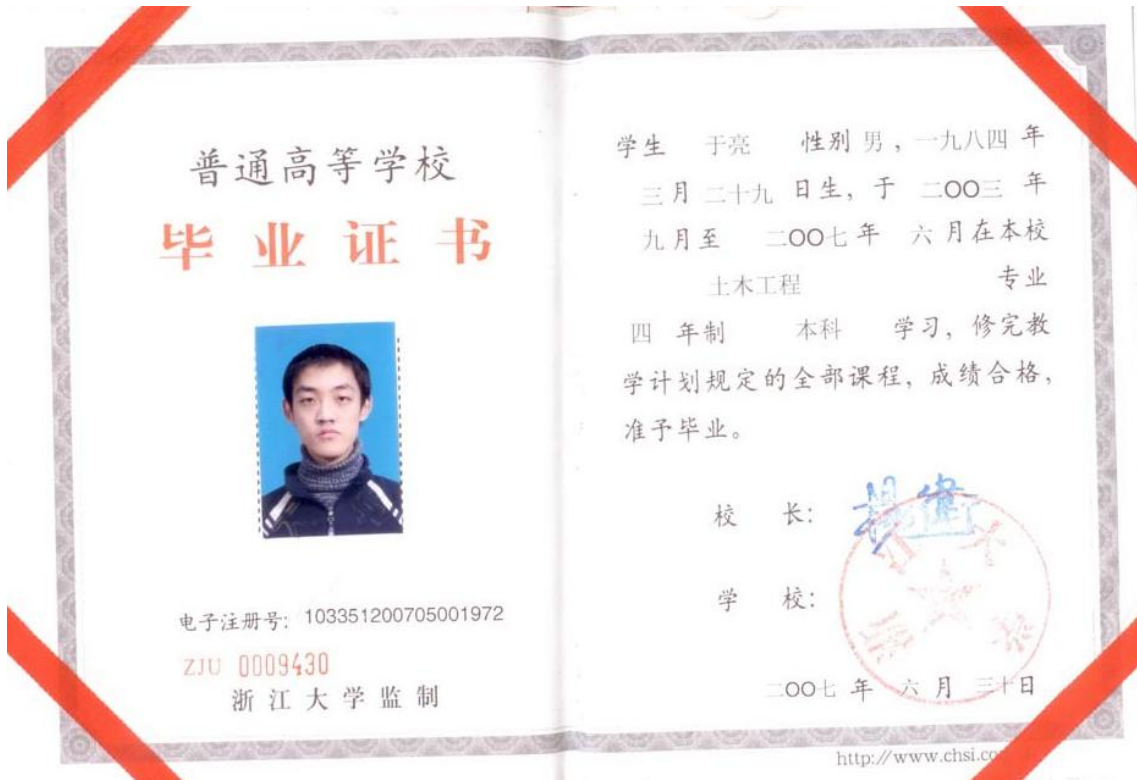 普通高等学校
毕业证书
电子注册号: 103351200705001972
ZJU 0009430
浙江大学监制
学生 于亮 性别 男，一九八四 年
三月 二十九 日生，于 二OO三 年
九月至 二OO七年 六月在本校
土木工程 专业
四 年制 本科 学习，修完教
学计划规定的全部课程，成绩合格，
准予毕业。
校 长: 杨卫
学 校:
浙江大学
二OO七 年 六 月 三十日
http://www.chsi.co